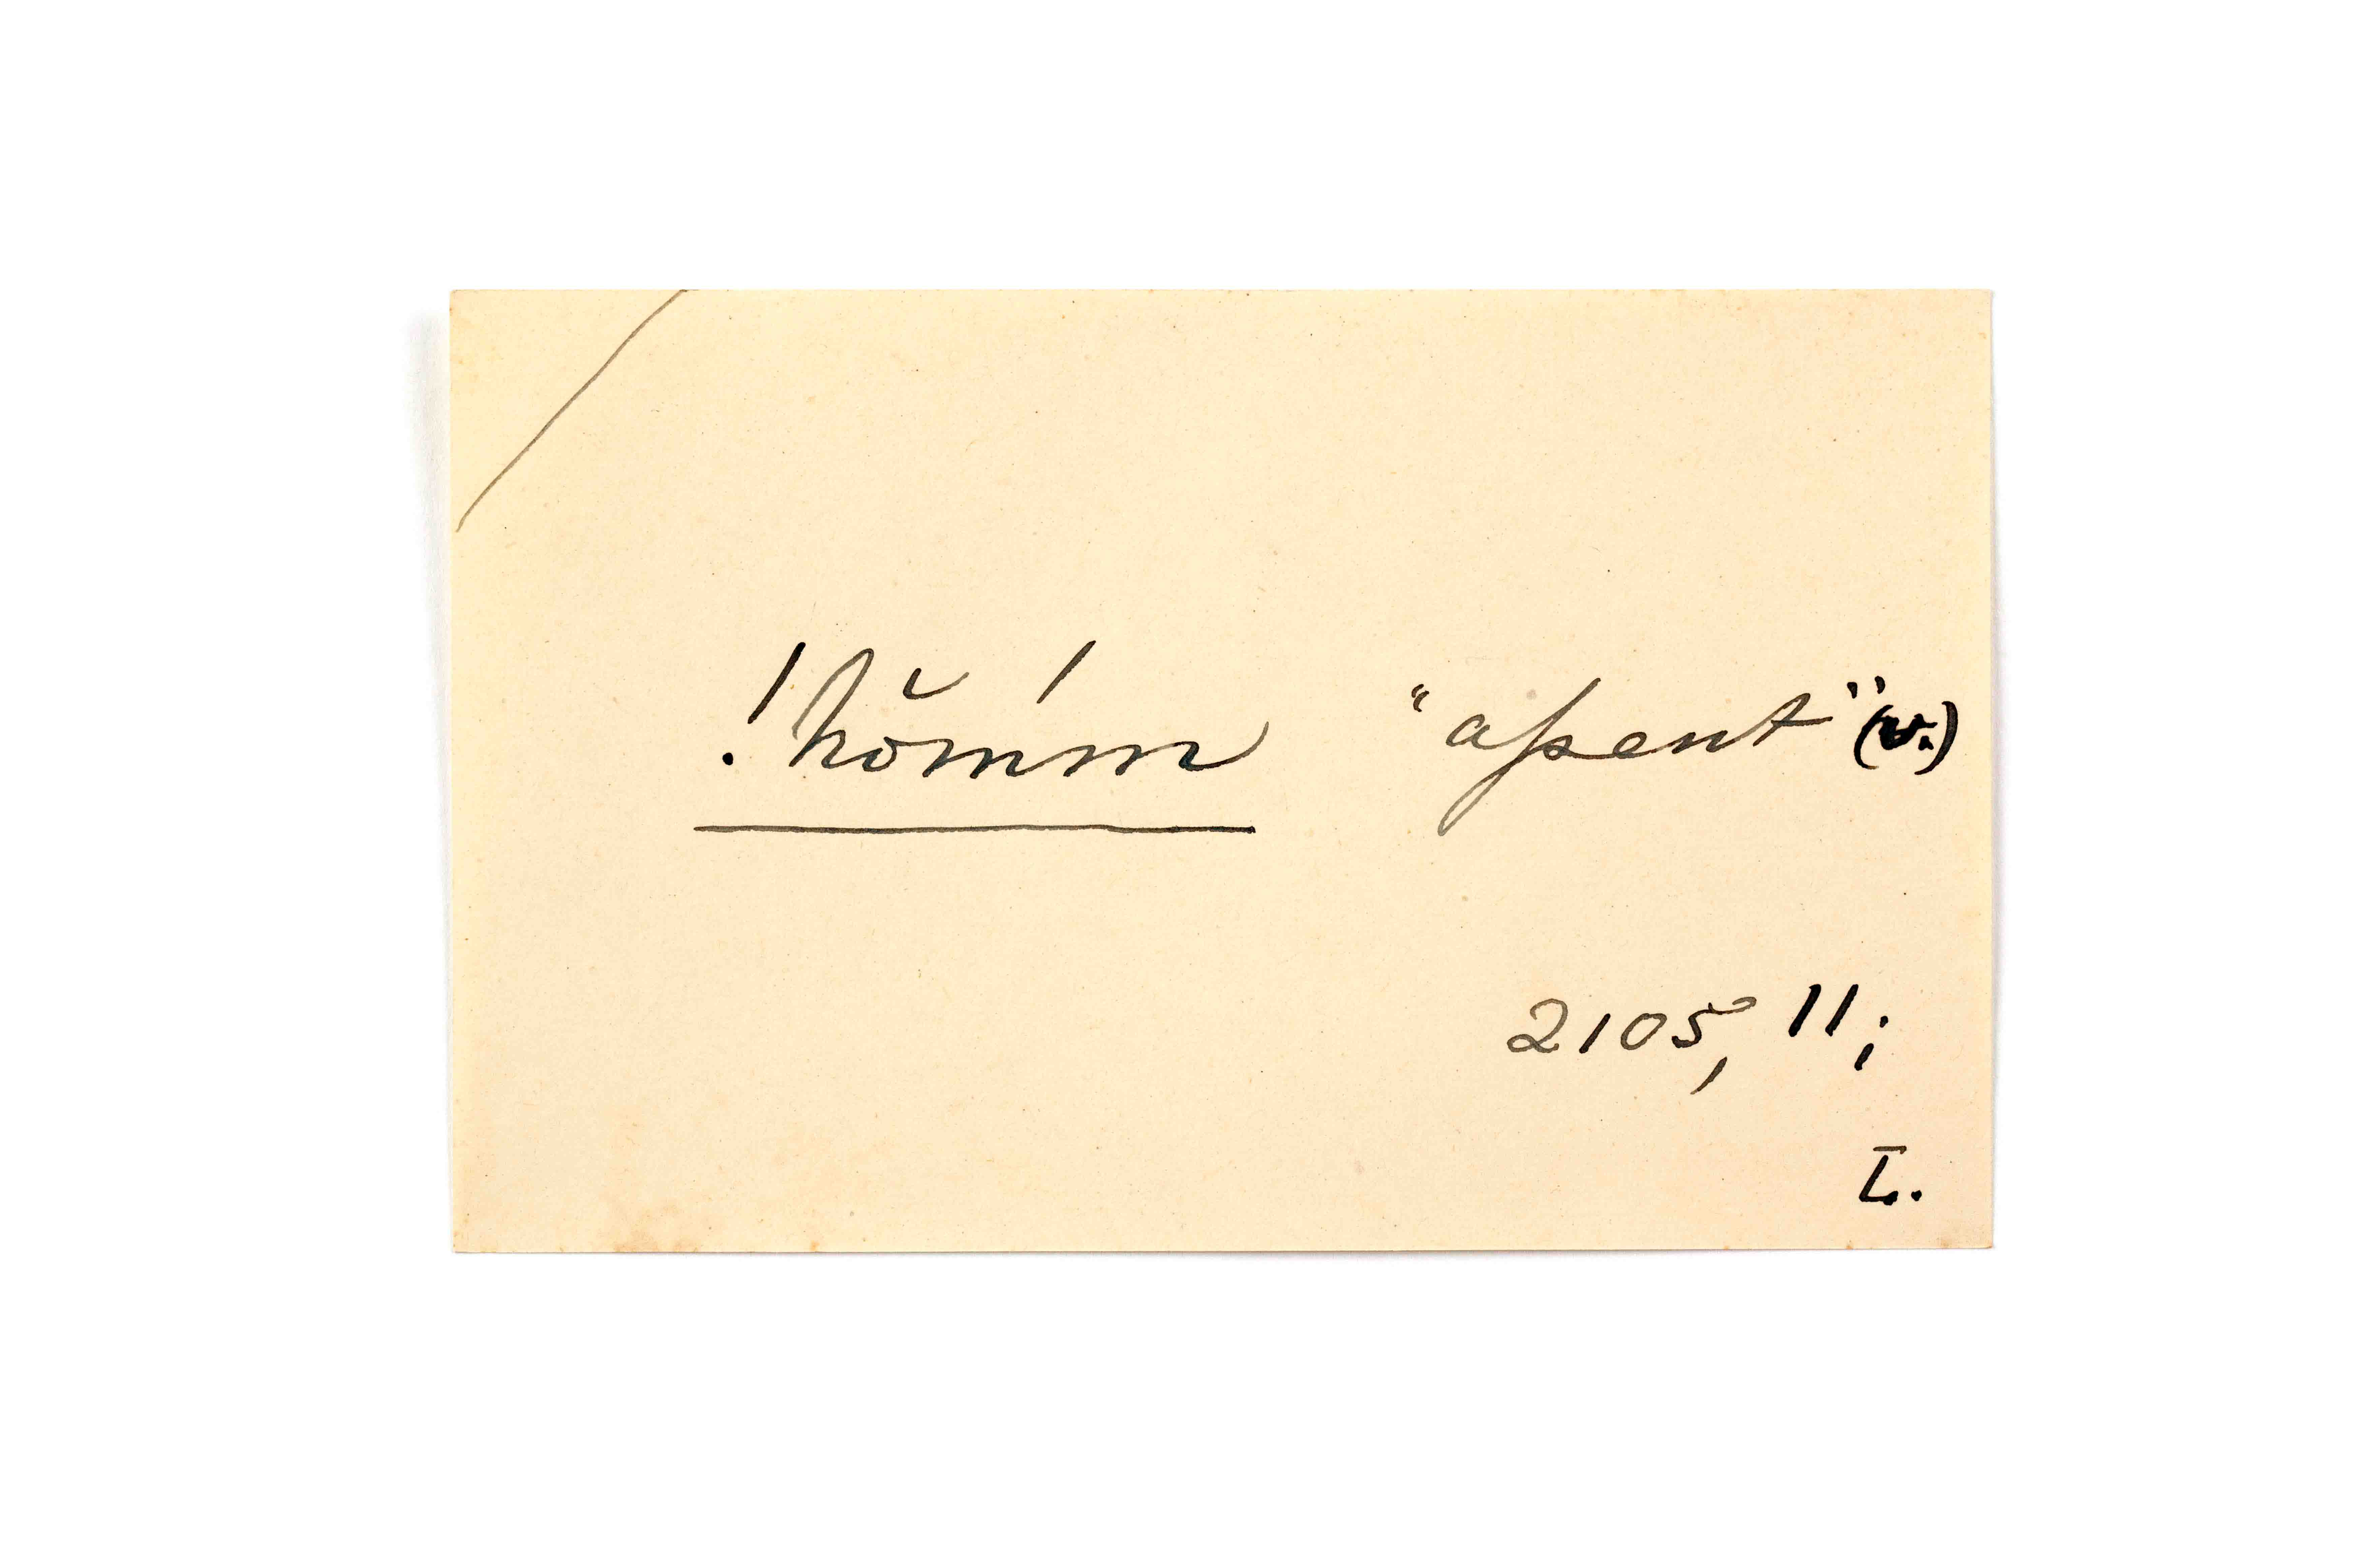 !hŏḿm "assent" (v.)
2105, 11;
L.